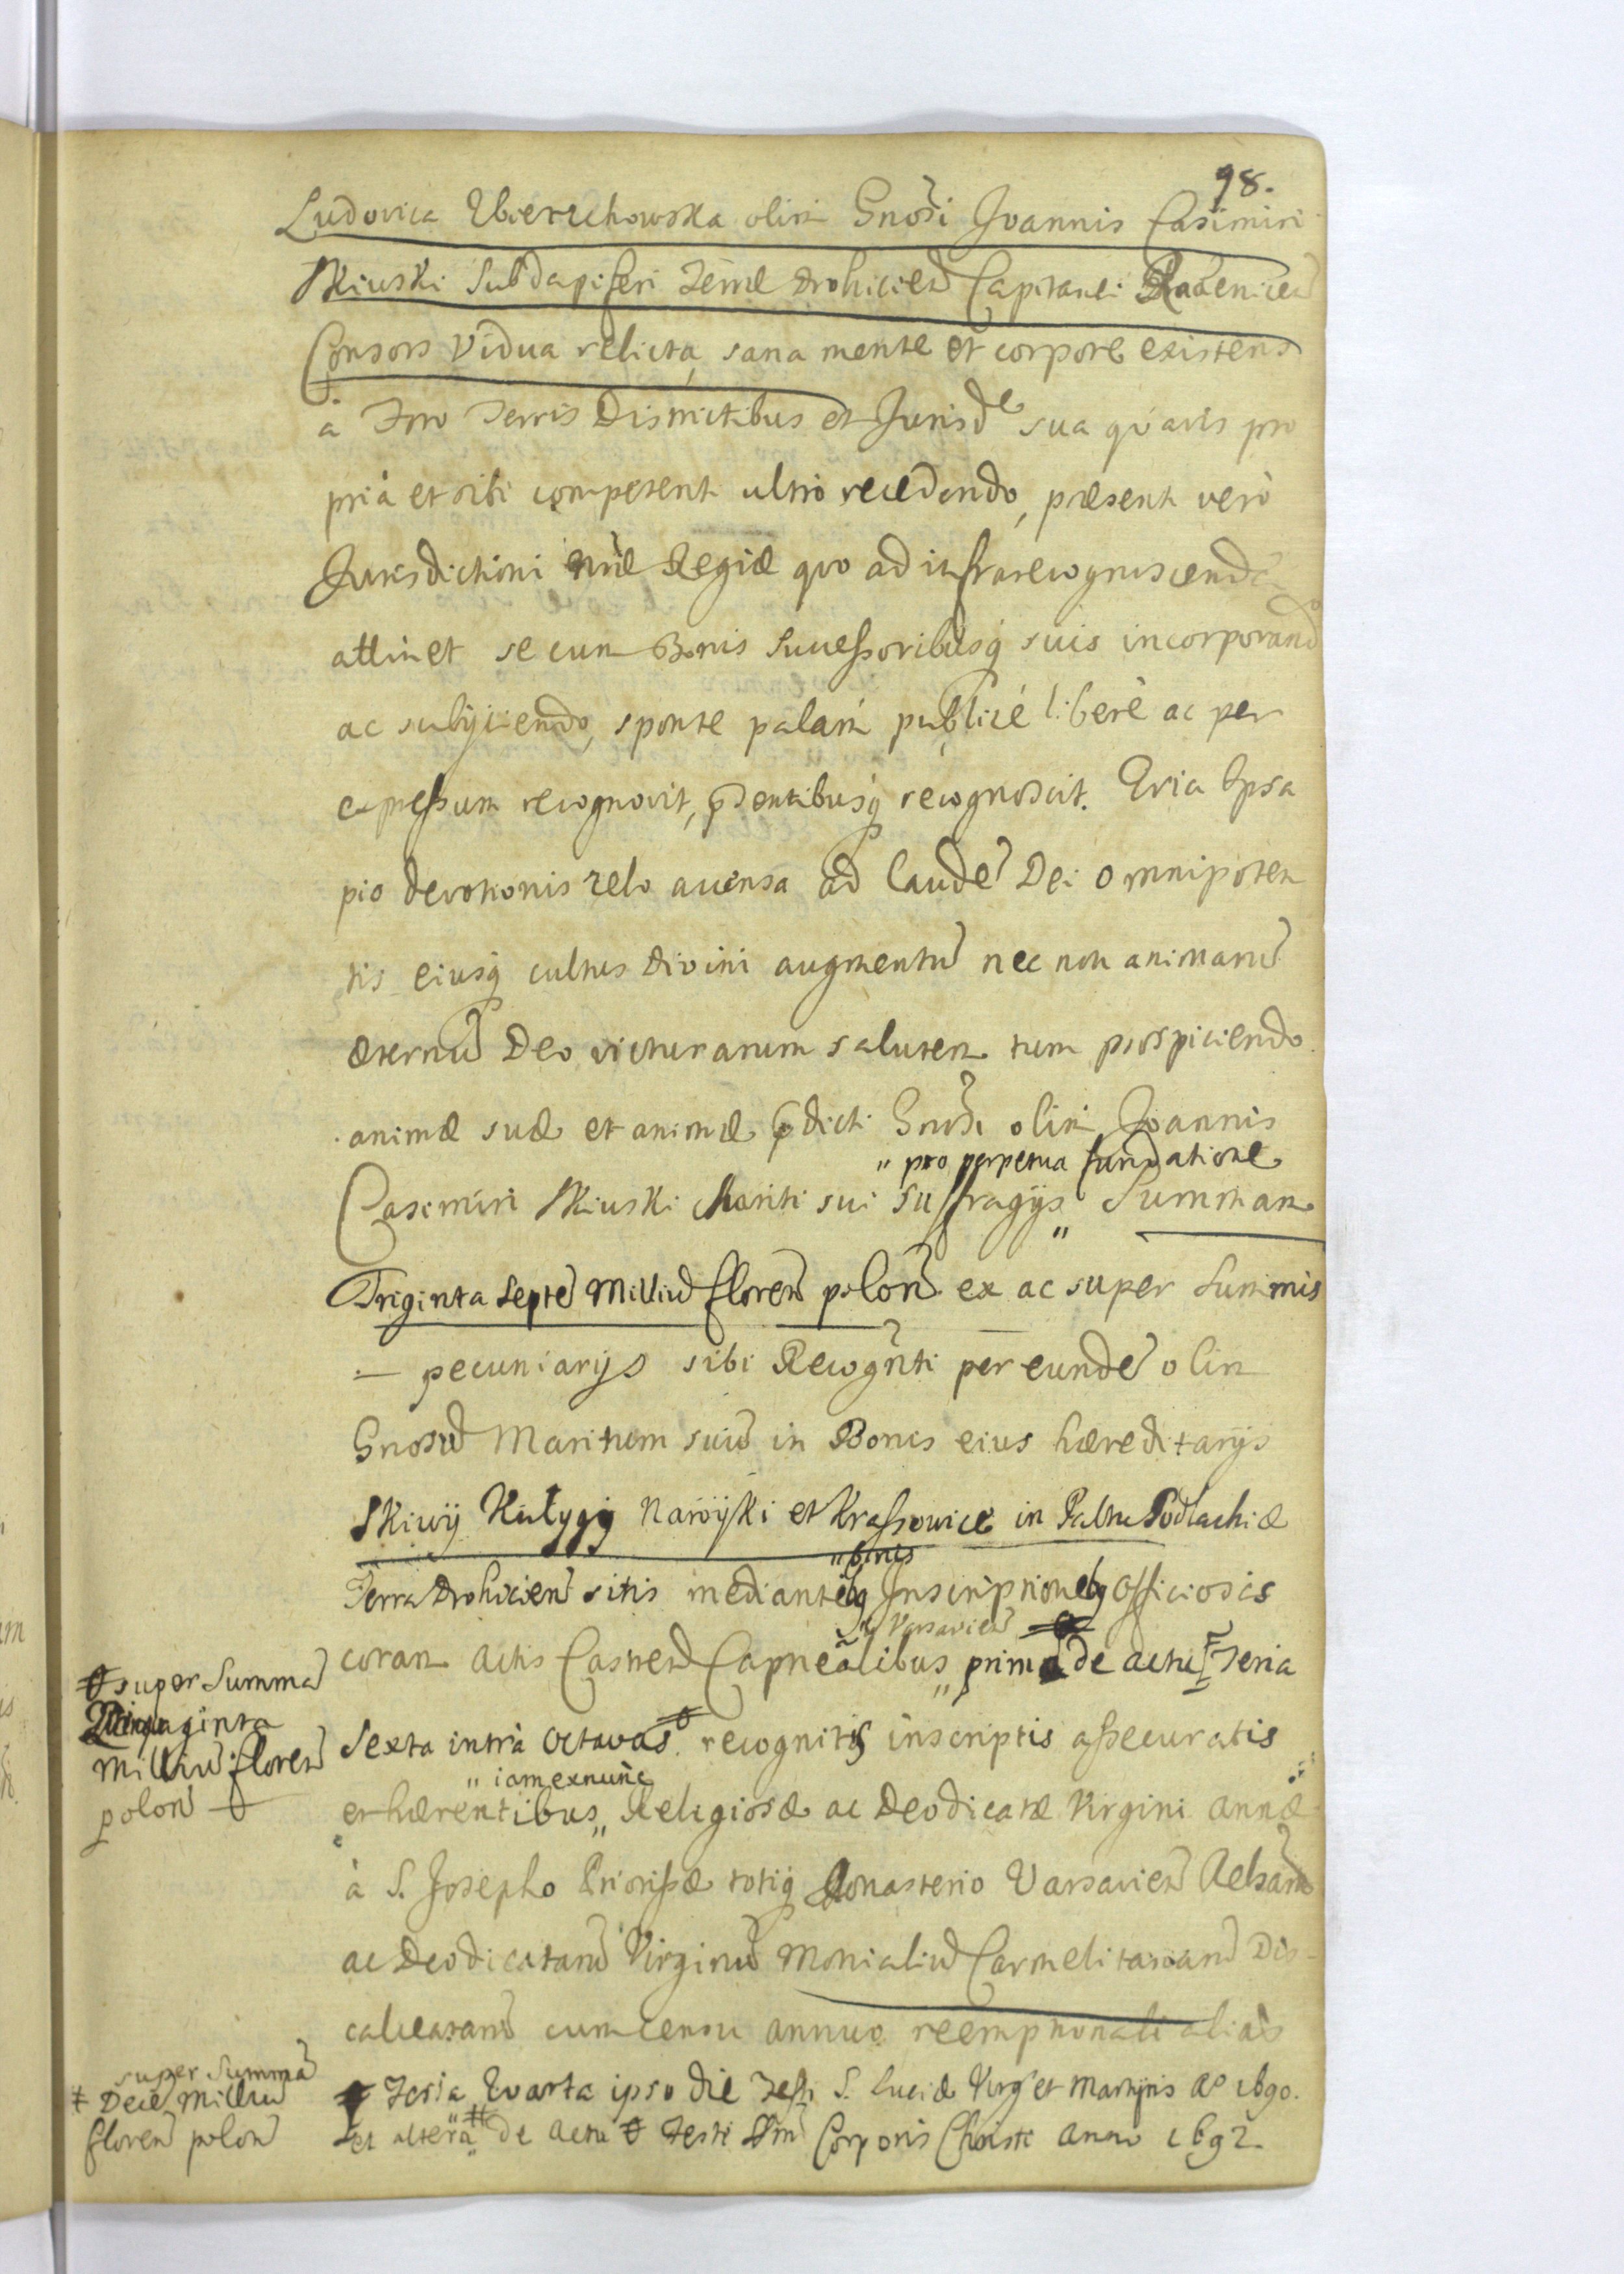 98.
Ludovica Wierzchowska olim Gnosi Joannis Casimiri
Skiwski Subdapiferi Terræ Drohicien Capitanei
Consors Vidua relicta, sana mente et corpore existens
à Foro Terris Districtibus et Jurisde sua quavis pro
pria et sibi competent ultrò recedendo, præsent verò
Jurisdictioni Regiæ quo ad infrarecognoscenda
attinet se cum Bonis Successoribusq suis incorporand
ac subijciendo, sponte palam publicè liberè ac per
expressum recognovit, pñtibusq recognoscit. Qvia Ipsa
pio devotionis zelo accensa ad Laudē Dei Omnipoten
tis eiusq cultus Divini augmentū nec non animarū
æternū Deo victurarum salutem tum prospiciendo
animæ suæ et animæ pdicti Gnosi olim Joannis
" pro perpetua fundatione
Casimiri Skiwski Mariti sui suffragijs " Summam
Triginta Septē Milliū floren polon ex ac super Summis
pecuniarijs sibi Recognti per eundē olim
Gnosū Maritum suū in Bonis eius hæreditarijs
Skiwij Kałygij Nawijki et Krassowice in Paltu Podlachiæ
" binis
Terra Drohicien sitis mediantibq Inscriptionebq Officiosis
Varsavien
coram Actis Castren Capnealibus " prima de actu Feria
Sexta intrà Octavas recognitis inscriptis assecuratis
" iam exnunc
et hærentibus " Religiosæ ac Deodicatæ Virgini Annæ
à S. Josepho Priorissæ totiq Monasterio Varsavien
ac Deodicatarū Virginū Monialiū Carmelitarum Dis-
calceatarū cum censu annuo reemptionali alias
Feria Quarta ipso die Festi S. Luciæ Virg et Martyris Ao 1690.
et altera de actu Festi Smi Corporis Christi Anno 1692.
super Summa
Quinquaginta
Milliū floren
polon
super Summa
Decē Milliū
floren polon